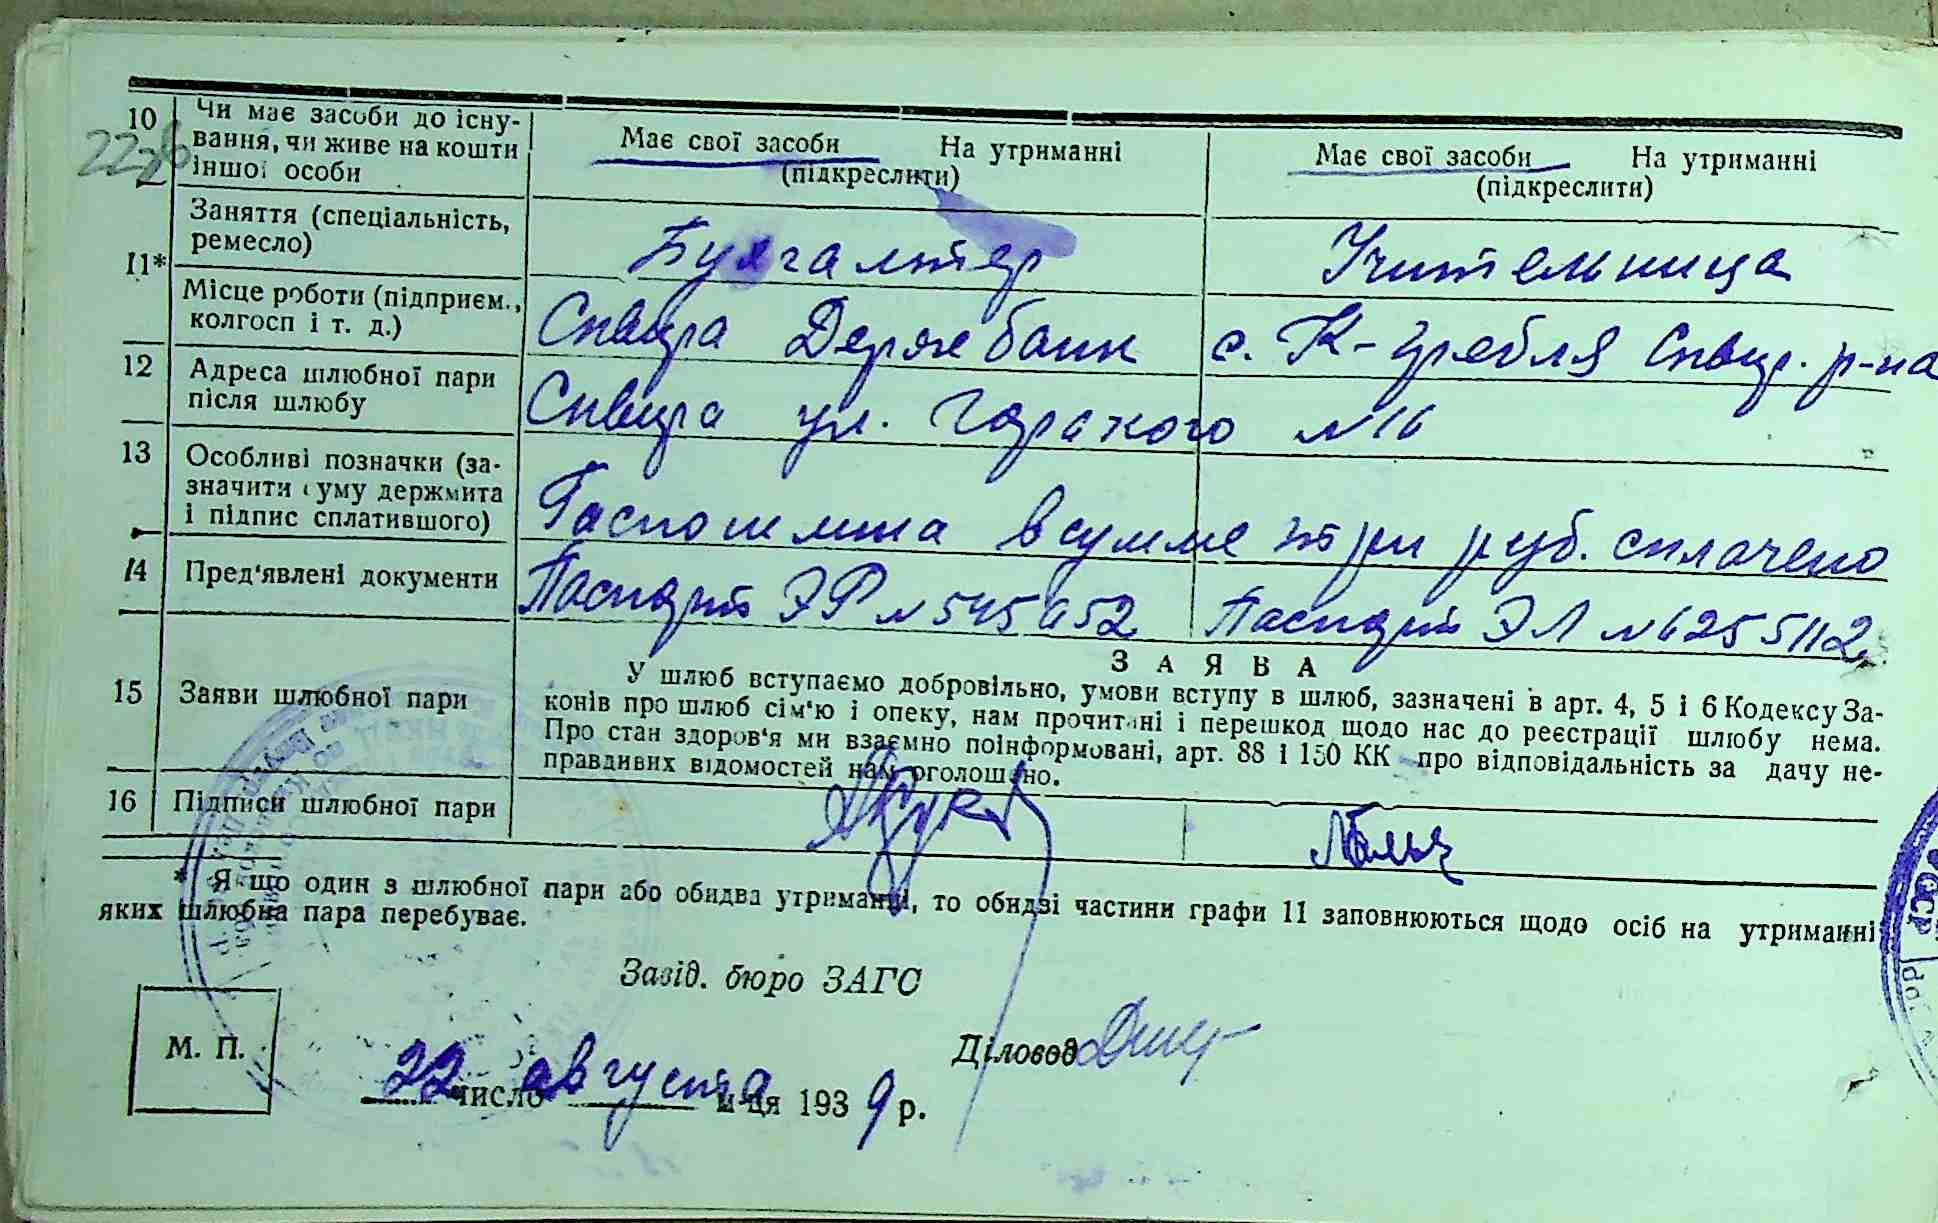 10
Чи має засоби до існу-
вання, чи живе на кошти
іншої особи
Має свої засоби На утриманні
(підкреслити)
Має свої засоби На утриманні
(підкреслити)
11*
Заняття (спеціальність,
ремесло)
Бухгалтер
Учительница
Місце роботи (підприєм.,
колгосп і т. д.)
Сквира Держбанк
с. К-Гребля Сквир. р-на
12
Адреса шлюбної пари
після шлюбу
Сквира ул. Горького №16
13
Особливі позначки (за-
значити суму держмита
і підпис сплатившого)
Госпошлина в сумме три руб. сплачено
14
Пред'явлені документи
Паспорт ЭР №
Паспорт ЭЛ №
15
Заяви шлюбної пари
ЗАЯВА
У шлюб вступаємо добровільно, умови вступу в шлюб, зазначені в арт. 4, 5 і 6 Кодексу За-
конів про шлюб сім'ю і опеку, нам прочитані і перешкод щодо нас до реєстрації шлюбу нема.
Про стан здоров'я ми взаємно поінформовані, арт. 88 і 150 КК про відповідальність за дачу не-
правдивих відомостей нам оголошено.
16
Підписи шлюбної пари
* Якщо один з шлюбної пари або обидва утриманці, то обидві частини графи 11 заповнюються щодо осіб на утриманні
яких шлюбна пара перебуває.
Завід. бюро ЗАГС
М. П.
Діловод
22 число августа м-ця 1939 р.
УССР